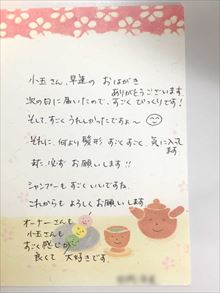 小玉さん、早速の おはがき
ありがとうございます
次の日に届いたので、すごく びっくりです!
そして、すごく うれしかったですよ〜
それに、何より 髪形 すごくすごく、気に入ってます
また、必ず お願いします!!
シャンプーも すごくいいですね。
これからも よろしくお願いします
オーナーさんも
小玉さんも
すごく感じが
良くて 大好きです。